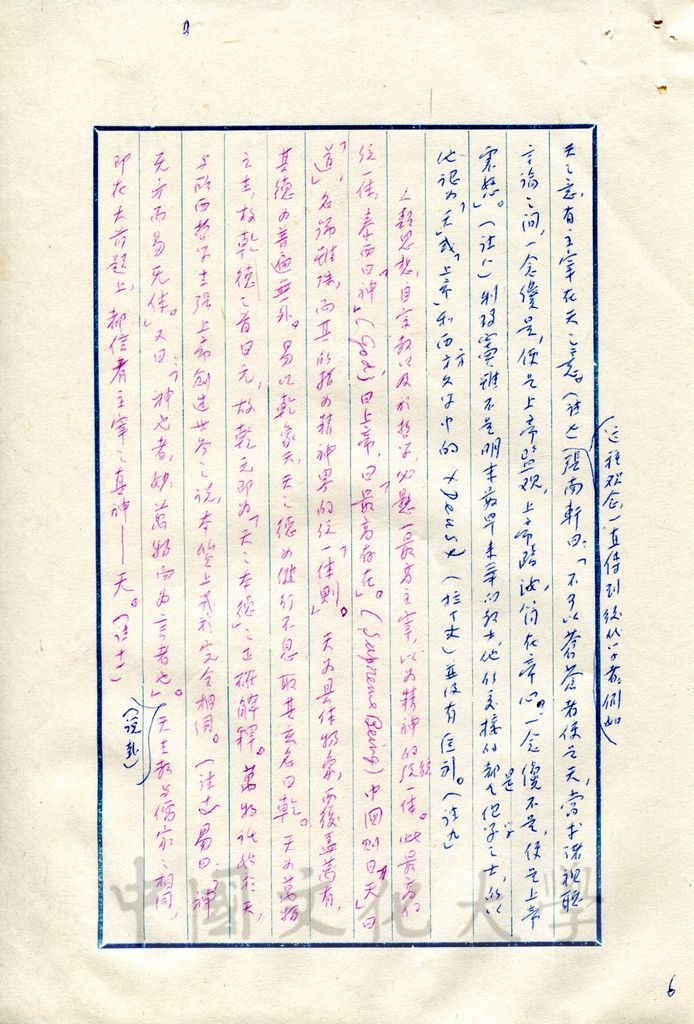 天之意，有主宰在天之意。(註七)張南軒曰：「不可以蒼蒼者便是天，當求諸視聽
這種观念，一直傳到後代學者。例如
言論之間，一念儍是，便是上帝監观，上帝臨汝，簡在帝心。一念儍不是，便是上帝
震怒。」(註八)利瑪竇雖不是明末最早來華的教士，他所交接的都是儒學之士，所以
他認为「天」或「上帝」和西方文字中的 (拉丁文) 並沒有區別。(註九)
人類思想，自宗教以及於哲学，必懸一最高主宰，以为精神的統一体。此最高的
統一体，泰西曰「神」(God)，曰上帝，曰「最高存在」。(Supreme Being) 中國則曰「天」曰
「道」，名謂雖殊，而其所指为精神界的統一「体」則一。天为具体物象，而後蓋萬有，
其德为普遍無外。易以乾象天，天之德为健行不息，取其玄名曰乾。天为萬物
之主，故乾德之首曰元，故乾元即为「天之本德」之正確解釋。萬物託始於天，
与西哲学主張上帝創造世界之說，本質上幾於完全相同。(註十)易曰：「神
无方而易无体。」又曰：「神也者，妙萬物而为言者也」。(說卦)天主教与儒家之相同，
即在大前題上，都信着主宰之真神——天。(註十一)
6
中國文化大學